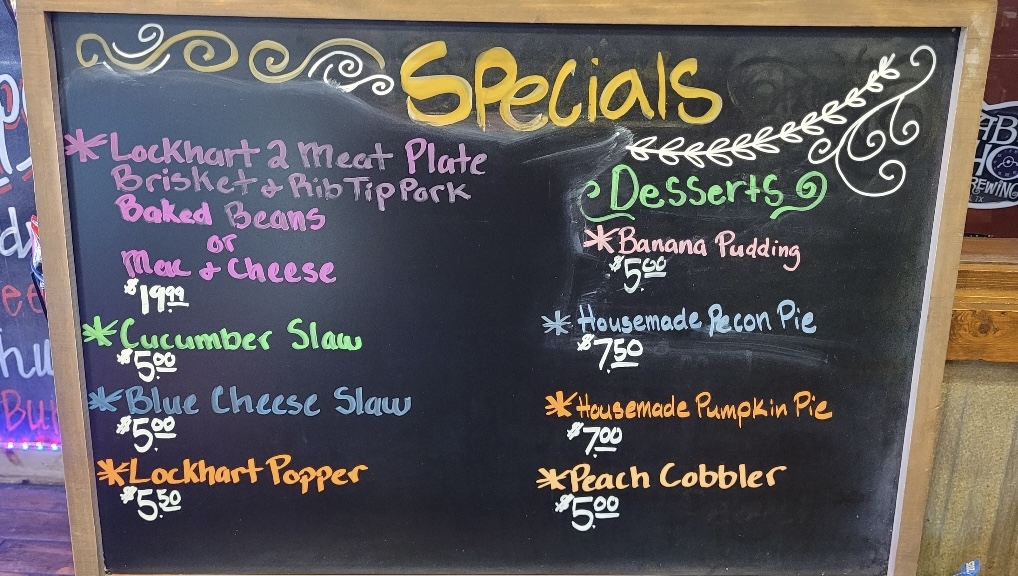 Specials
*Lockhart 2 Meat Plate
Brisket & Rib Tip Pork
Baked Beans
or
Mac & Cheese
$19.99
*Cucumber Slaw
$5.00
*Blue Cheese Slaw
$5.00
*Lockhart Popper
$5.50
Desserts
*Banana Pudding
$5.00
*Housemade Pecon Pie
$7.50
*Housemade Pumpkin Pie
$7.00
*Peach Cobbler
$5.00